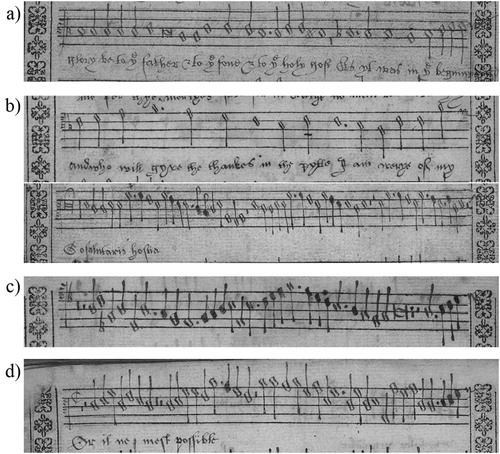 a)
glory be to yͤ father & to yͤ sone & to yͤ holy gost As yt was in yͤ
b)
and who will gyve the thankes in the pytte I am of my
O salutaris hostia
c)
d)
Or il mest possible